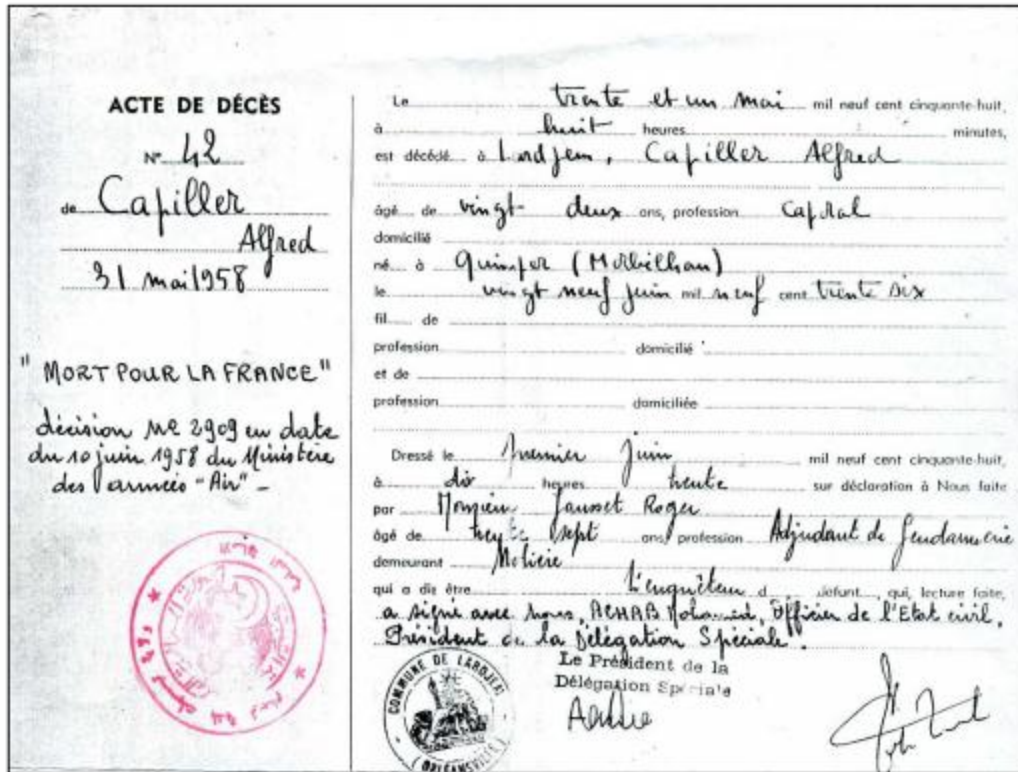 ACTE DE DÉCÈS
N° 42
de Capiller
Alfred
31 mai 1958
"MORT POUR LA FRANCE"
décision No 2909 en date
du 10 juin 1958 du Ministère
des armées "Air" -
Le trente et un mai mil neuf cent cinquante-huit,
à huit heures minutes,
est décédé à Lardjem, Capiller Alfred
âgé de vingt deux ans, profession Caporal
domicilié
né à Quimper (Morbihan)
le vingt neuf juin mil neuf cent trente six
fil de
profession domicilié
et de
profession domiciliée
Dressé le premier juin mil neuf cent cinquante-huit,
à dix heures trente sur déclaration à Nous faite
par Monsieur Jausset Roger
âgé de trente sept ans, profession Adjudant de Gendarmerie
demeurant Molière
qui a dit être L'enquêteur d défunt, qui, lecture faite,
a signé avec nous, ACHAB Mohamed, Officier de l'Etat civil,
Président de la Délégation Spéciale.
Le Président de la
Délégation Spéciale
COMMUNE DE LARDJEM
(ORLÉANSVILLE)